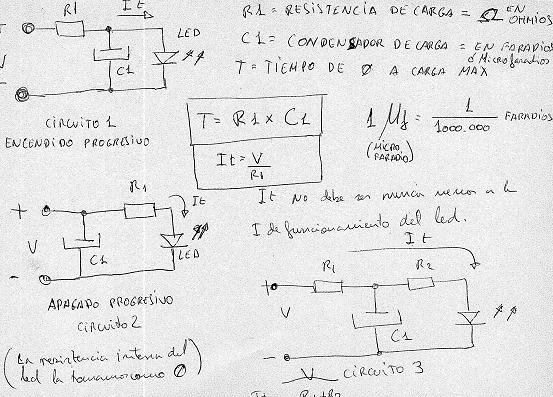 R1 It
LED
C1
V
CIRCUITO 1
ENCENDIDO PROGRESIVO
R1 = RESISTENCIA DE CARGA = Ω EN OHMIOS
C1 = CONDENSADOR DE CARGA = EN FARADIOS
ó Microfaradios
T = TIEMPO DE Ø A CARGA MAX
T = R1 x C1
It = V / R1
1 μf = 1 / 1000.000 FARADIOS
(MICRO FARADIO)
It No debe ser nunca menor a la
I de funcionamiento del led.
+ R1 It
V C1 LED
-
APAGADO PROGRESIVO
CIRCUITO 2
(La resistencia interna del
led la tomamos como Ø)
It
+ R1 R2
V C1
-
CIRCUITO 3
V
It = R1+R2